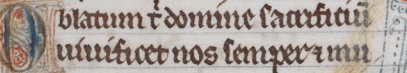 Oblatum t̄ domine sacrificiū
uiuificet nos semper ⁊ mu